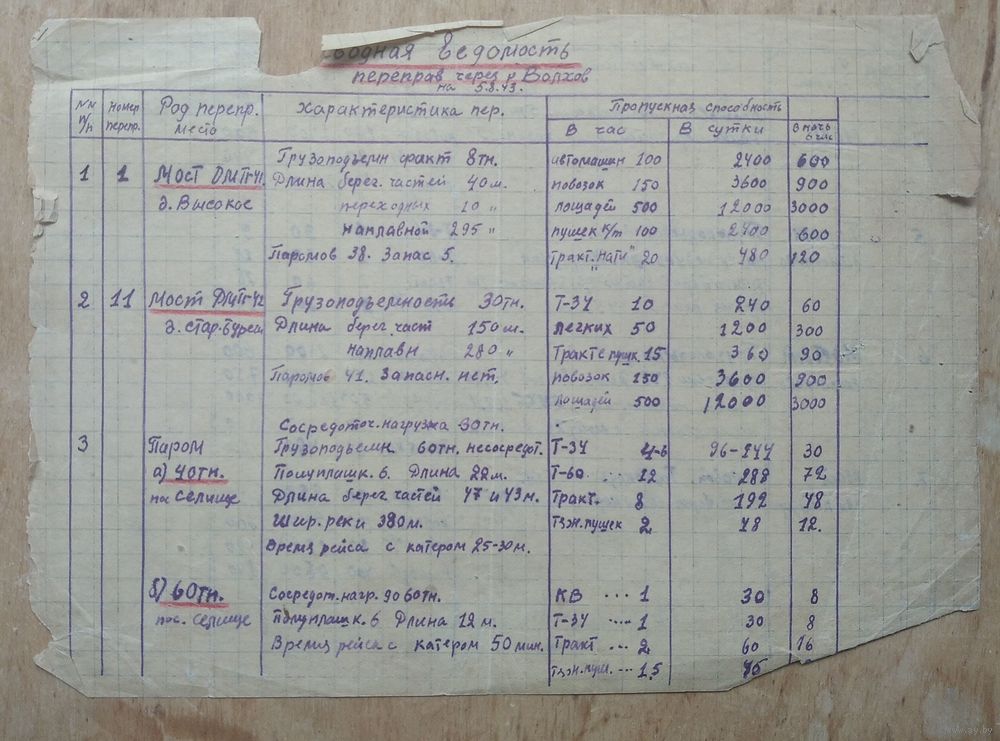 водная Ведомость
переправ через р Волхов
на 5.8.43.
NN п/п Номер перепр. Род перепр. место Характеристика пер. Пропускная способность
В час В сутки В ночь
1 1 Мост ДМП-41. Грузоподъемн факт 8тн. автомашин 100 2400 600
Длина берег. частей 40м. повозок 150 3600 900
д. Высокое переходных 10 " лошадей 500 12000 3000
наплавной 295 " пушек к/т 100 2400 600
Паромов 38. Запас 5. Тракт. "нати" 20 480 120
2 11 Мост ДМП-42 Грузоподъемность 30тн. Т-34 10 240 60
д. Стар. Буреги Длина берег. част 150м. легких 50 1200 300
наплавн 280 " Тракт с пушк. 15 360 90
Паромов 41. Запасн. нет. повозок 150 3600 900
лошадей 500 12000 3000
Сосредоточ. нагрузка 30тн.
3 Паром Грузоподъемн 60тн. несосредот. Т-34 4-6 96-144 30
а) 40тн. Полуплашк. 6. Длина 22м. Т-60 12 288 72
пос селище Длина берег частей 47 и 43м. Тракт. 8 192 48
Шир. реки 380м. тяж. пушек 2 48 12.
Время рейса с катером 25-30м.
б) 60тн. Сосредот. нагр. до 60тн. КВ ... 1 30 8
пос. селище Полуплашк. 6 Длина 12м. Т-34 .... 1 30 8
Время рейса с катером 50мин. Тракт ... 2 60 16
тяж. пуш. ... 1.5 45
www.ay.by